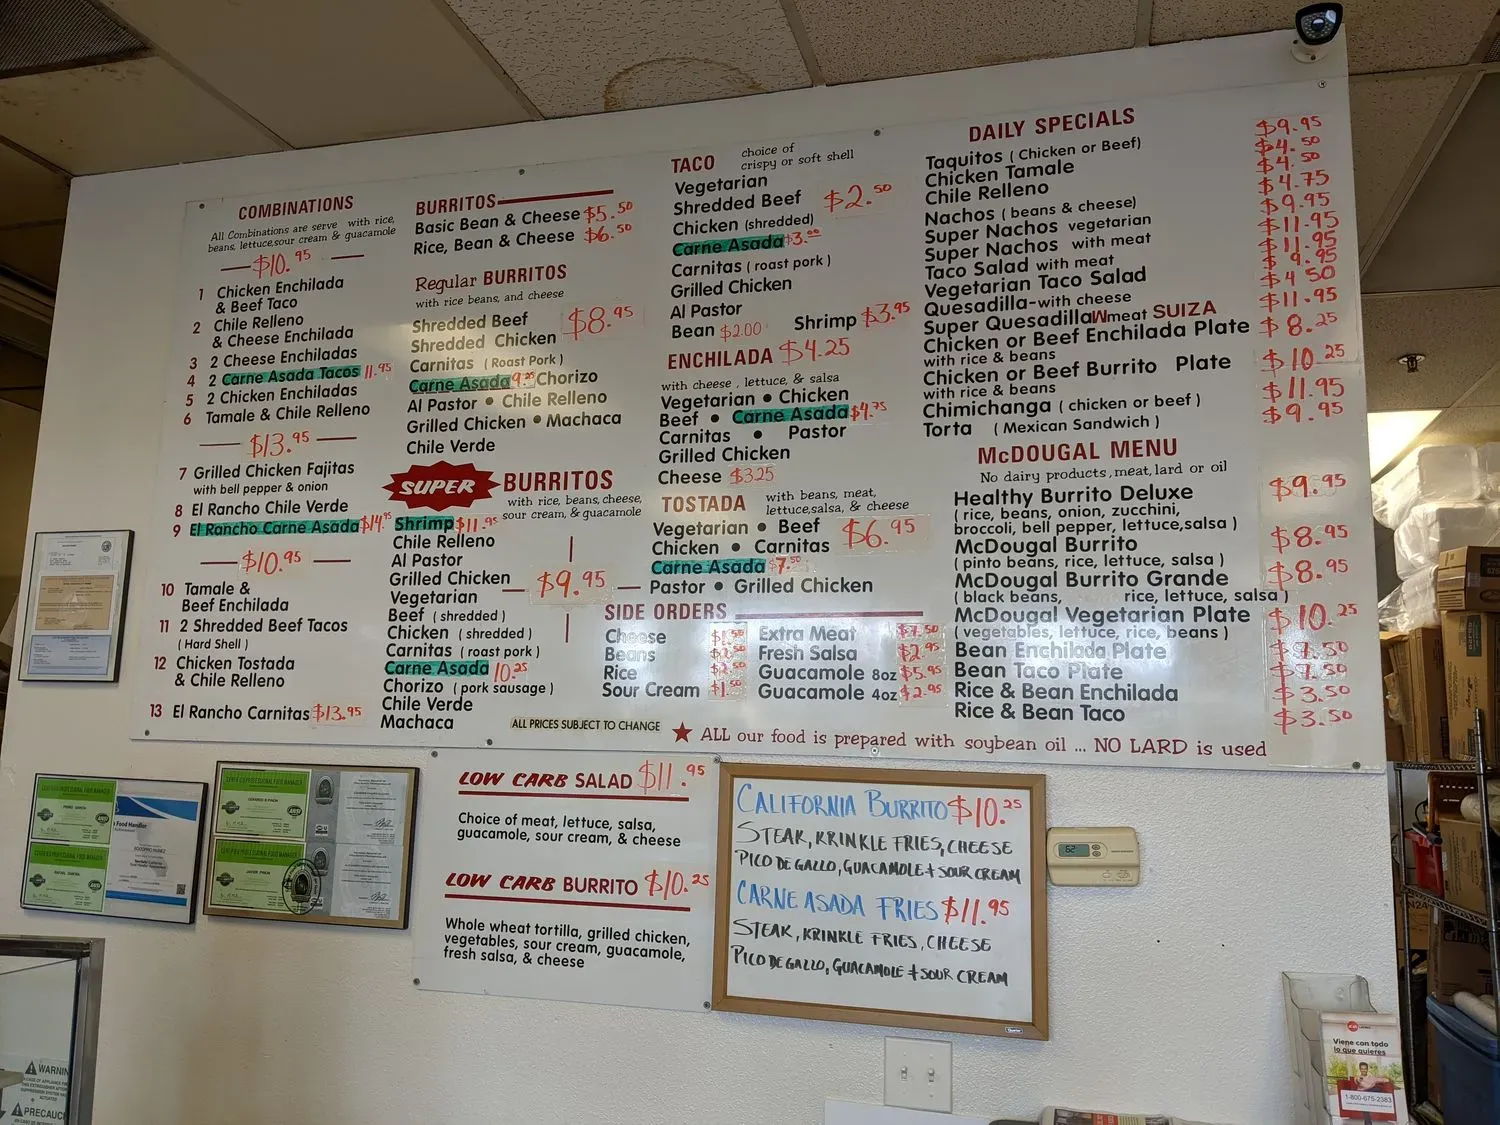 COMBINATIONS
All Combinations are serve with rice,
beans, lettuce,sour cream & guacamole
$10.95
1 Chicken Enchilada
& Beef Taco
2 Chile Relleno
& Cheese Enchilada
3 2 Cheese Enchiladas
4 2 Carne Asada Tacos 11.95
5 2 Chicken Enchiladas
6 Tamale & Chile Relleno
$13.95
7 Grilled Chicken Fajitas
with bell pepper & onion
8 El Rancho Chile Verde
9 El Rancho Carne Asada $14.95
$10.95
10 Tamale &
Beef Enchilada
11 2 Shredded Beef Tacos
(Hard Shell)
12 Chicken Tostada
& Chile Relleno
13 El Rancho Carnitas $13.95
BURRITOS
Basic Bean & Cheese $5.50
Rice, Bean & Cheese $6.50
Regular BURRITOS
with rice beans, and cheese
Shredded Beef $8.95
Shredded Chicken
Carnitas (Roast Pork)
Carne Asada 9.25 Chorizo
Al Pastor • Chile Relleno
Grilled Chicken • Machaca
Chile Verde
SUPER BURRITOS
with rice, beans, cheese,
sour cream, & guacamole
Shrimp $11.95
Chile Relleno
Al Pastor
Grilled Chicken $9.95
Vegetarian
Beef (shredded)
Chicken (shredded)
Carnitas (roast pork)
Carne Asada 10.25
Chorizo (pork sausage)
Chile Verde
Machaca
TACO choice of
crispy or soft shell
Vegetarian
Shredded Beef $2.50
Chicken (shredded)
Carne Asada $3.00
Carnitas (roast pork)
Grilled Chicken
Al Pastor
Bean $2.00 Shrimp $3.95
ENCHILADA $4.25
with cheese, lettuce, & salsa
Vegetarian • Chicken
Beef • Carne Asada $4.75
Carnitas • Pastor
Grilled Chicken
Cheese $3.25
TOSTADA with beans, meat,
lettuce,salsa, & cheese
Vegetarian • Beef $6.95
Chicken • Carnitas
Carne Asada $7.50
Pastor • Grilled Chicken
SIDE ORDERS
Cheese $1.50 Extra Meat
Beans Fresh Salsa $2.95
Rice Guacamole 8oz $5.95
Sour Cream $1.50 Guacamole 4oz $2.95
ALL PRICES SUBJECT TO CHANGE
★ ALL our food is prepared with soybean oil ... NO LARD is used
DAILY SPECIALS
Taquitos (Chicken or Beef) $9.95
Chicken Tamale $4.50
Chile Relleno $4.50
Nachos (beans & cheese) $4.75
Super Nachos vegetarian $9.95
Super Nachos with meat $11.95
Taco Salad with meat $11.95
Vegetarian Taco Salad $9.95
Quesadilla-with cheese $4.50
Super Quesadilla Wmeat SUIZA $11.95
Chicken or Beef Enchilada Plate $8.25
with rice & beans
Chicken or Beef Burrito Plate $10.25
with rice & beans
Chimichanga (chicken or beef) $11.95
Torta (Mexican Sandwich) $9.95
McDOUGAL MENU
No dairy products,meat,lard or oil
Healthy Burrito Deluxe $9.95
(rice, beans, onion, zucchini,
broccoli, bell pepper, lettuce,salsa)
McDougal Burrito $8.95
(pinto beans, rice, lettuce, salsa)
McDougal Burrito Grande $8.95
(black beans, rice, lettuce, salsa)
McDougal Vegetarian Plate $10.25
(vegetables, lettuce, rice, beans)
Bean Enchilada Plate
Bean Taco Plate
Rice & Bean Enchilada $3.50
Rice & Bean Taco $3.50
LOW CARB SALAD $11.95
Choice of meat, lettuce, salsa,
guacamole, sour cream, & cheese
LOW CARB BURRITO $10.25
Whole wheat tortilla, grilled chicken,
vegetables, sour cream, guacamole,
fresh salsa, & cheese
CALIFORNIA BURRITO $10.25
STEAK, KRINKLE FRIES, CHEESE
PICO DE GALLO, GUACAMOLE + SOUR CREAM
CARNE ASADA FRIES $11.95
STEAK, KRINKLE FRIES, CHEESE
PICO DE GALLO, GUACAMOLE + SOUR CREAM
Food Handler
62
WARNIN
PRECAUC
Viene con todo
lo que quieres
1-800-675-2383